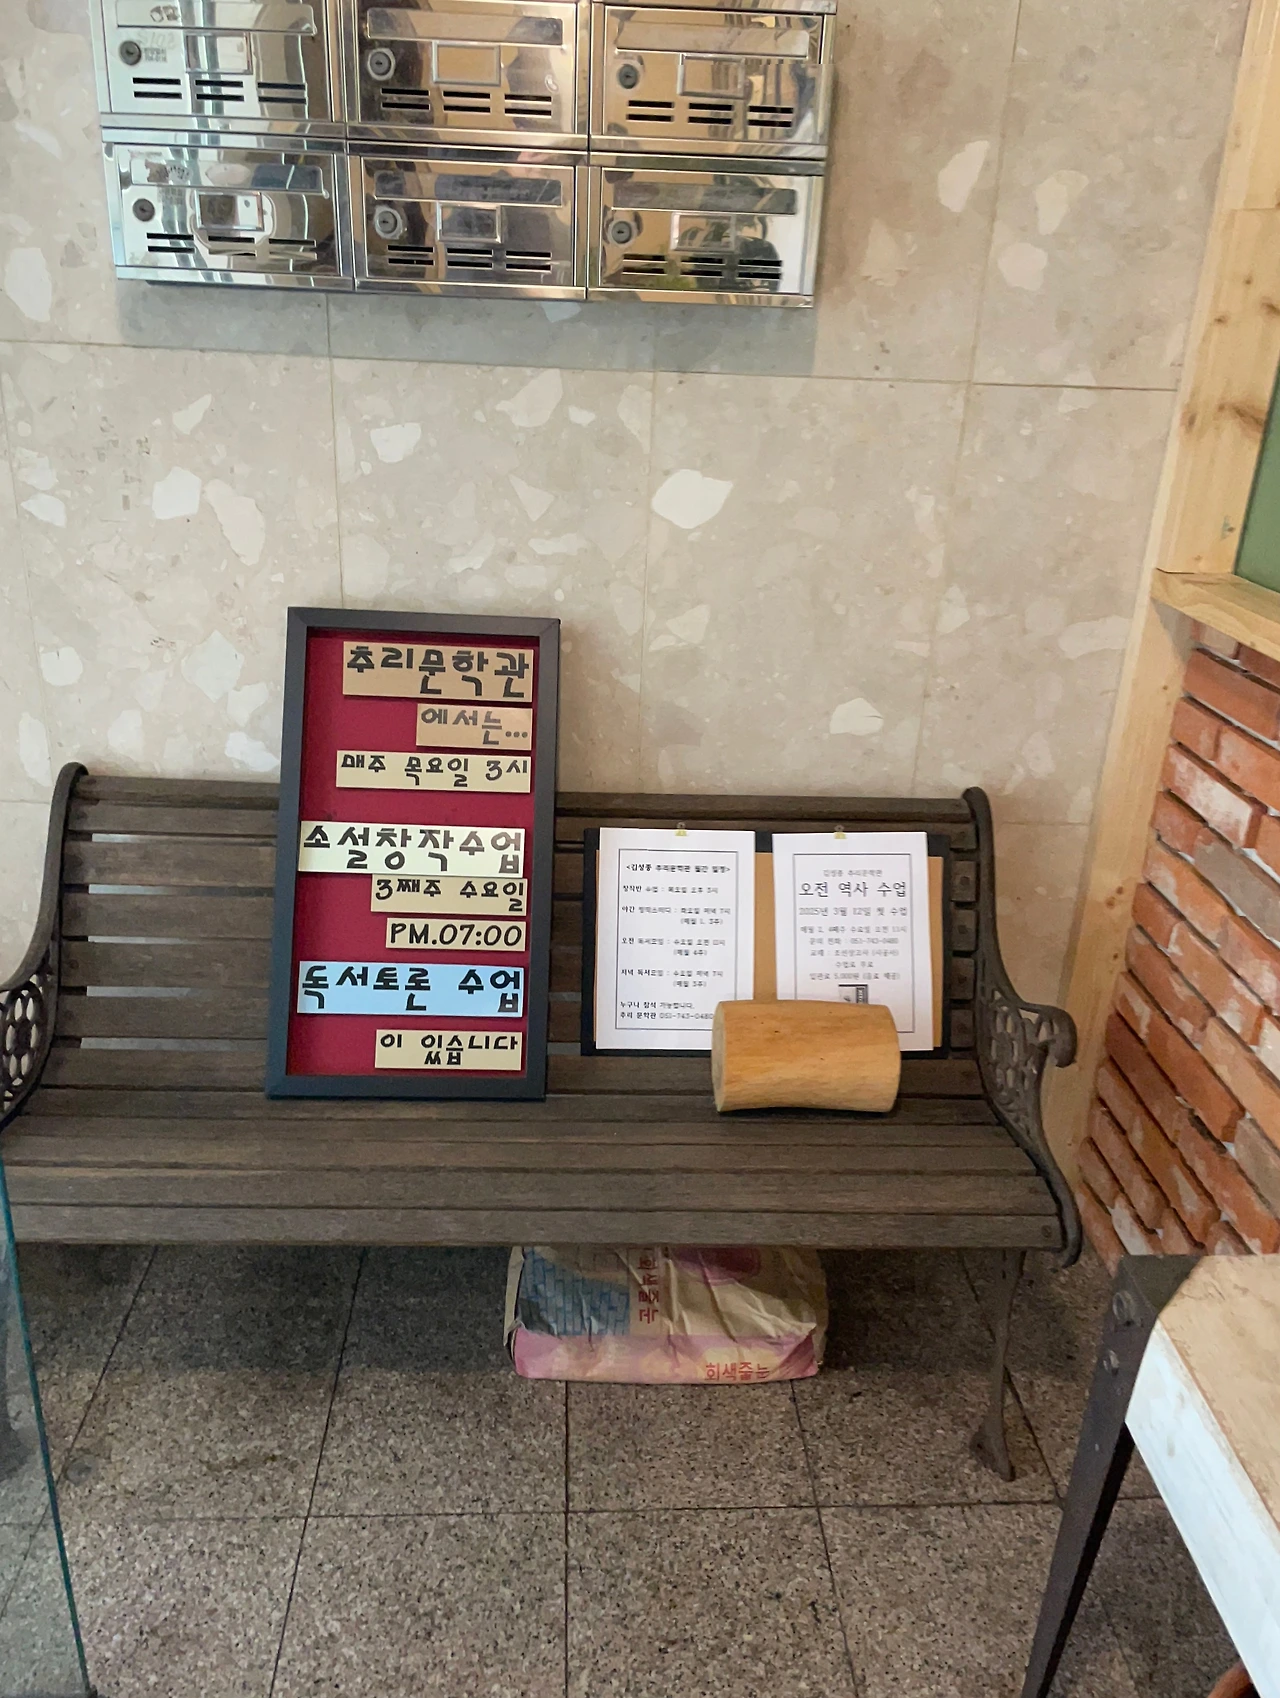 추리문학관
에서는...
매주 목요일 3시
소설창작수업
3째주 수요일
PM.07:00
독서토론 수업
이 있습니다
<김성종 추리문학관 월간 일정>
창작반 수업 : 목요일 오후 3시
야간 : 화요일 저녁 7시
(매월 1, 3주)
오전 독서모임 : 수요일 오전 11시
(매월 4주)
저녁 독서모임 : 수요일 저녁 7시
(매월 3주)
누구나 참석 가능합니다.
추리 문학관 051-743-0480
김성종 추리문학관
오전 역사 수업
2025년 3월 12일 첫 수업
매월 2, 4째주 수요일 오전 11시
문의 전화 : 051-743-0480
교재 : 조선상고사 (시공사)
수업료 무료
입관료 5,000원 (음료 제공)
회색줄눈
회색줄눈